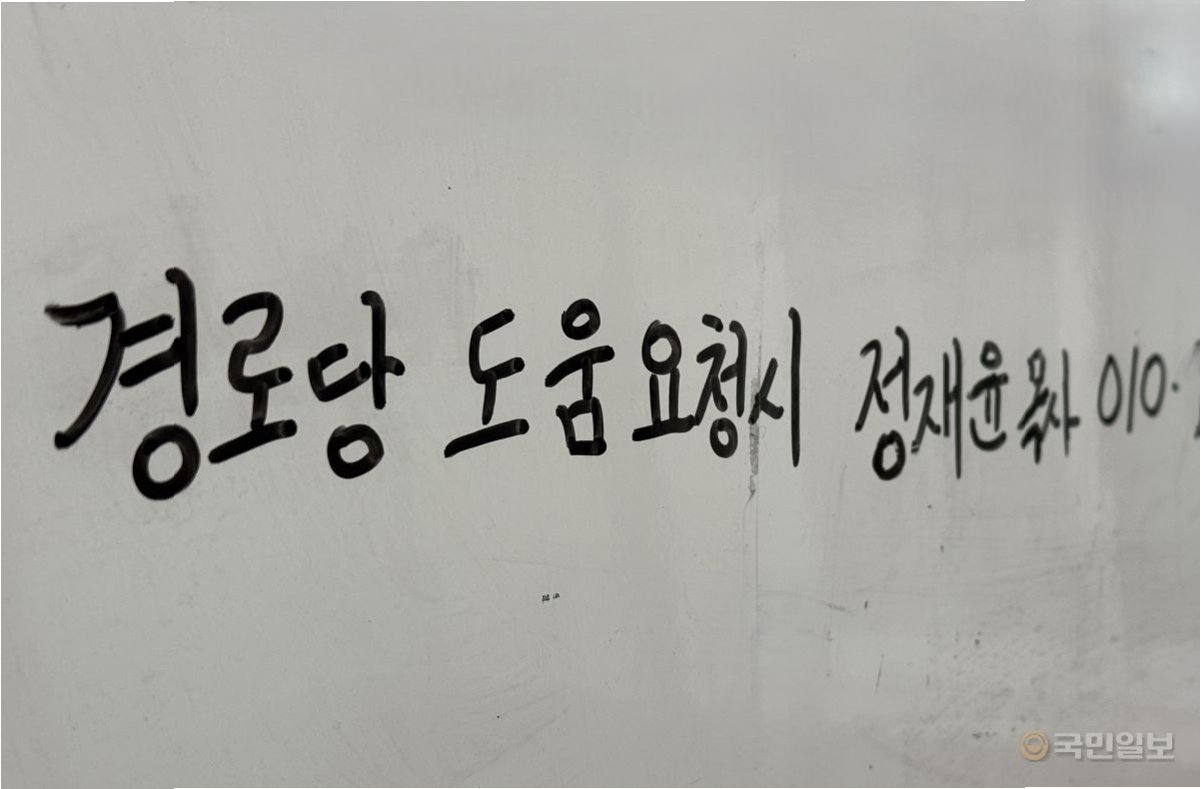 경로당 도움요청시 정재윤 목사 010.
국민일보